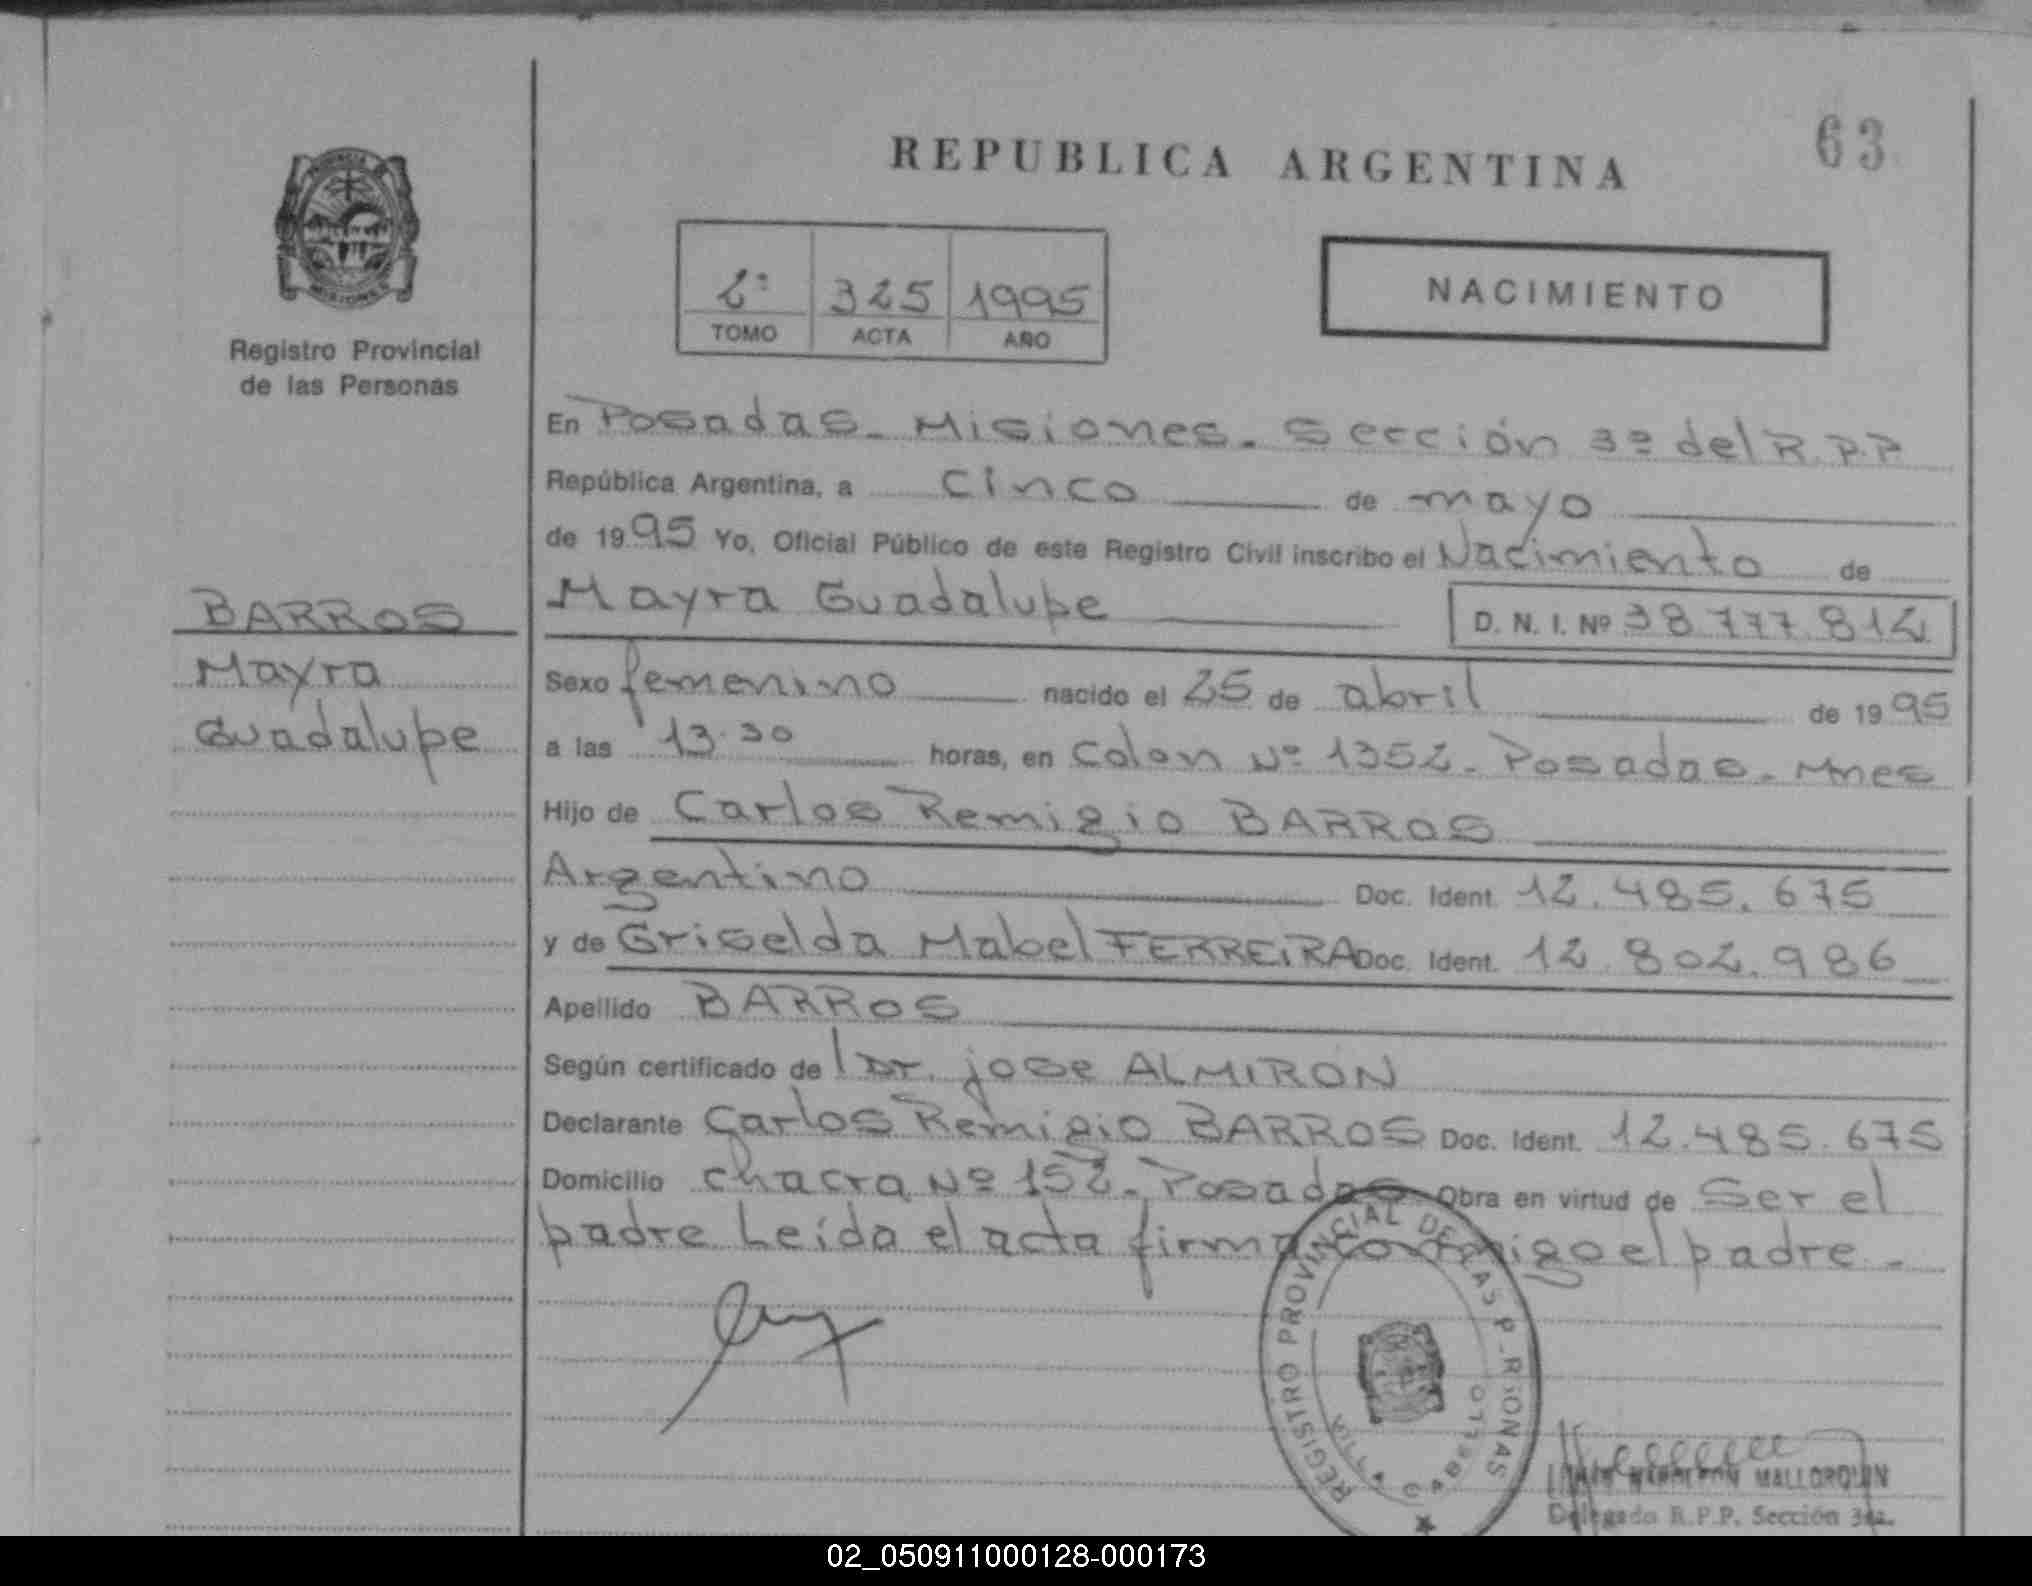 63
REPUBLICA ARGENTINA
MISIONES
Registro Provincial
de las Personas
2º 325 1995
TOMO ACTA AÑO
NACIMIENTO
En Posadas - Misiones - Sección 3º del R.P.P
República Argentina, a cinco de mayo
de 1995 Yo, Oficial Público de este Registro Civil inscribo el Nacimiento de
Mayra Guadalupe D. N. I. Nº 38.777.814
BARROS
Mayra
Guadalupe
Sexo femenino nacido el 25 de abril de 1995
a las 13.30 horas, en Colon Nº 1352 - Posadas - Mnes
Hijo de Carlos Remigio BARROS
Argentino Doc. Ident. 12.485.675
y de Griselda Mabel FERREIRA Doc. Ident. 12.802.986
Apellido BARROS
Según certificado de l Dr. jose ALMIRON
Declarante Carlos Remigio BARROS Doc. Ident. 12.485.675
Domicilio chacra Nº 152 - Posadas Obra en virtud de Ser el
padre Leída el acta firma conmigo el padre -
REGISTRO PROVINCIAL DE LAS PERSONAS
VILLA CABELLO
NAPOLEON MALLORQUIN
Delegado R.P.P. Sección 3ra.
02_050911000128-000173